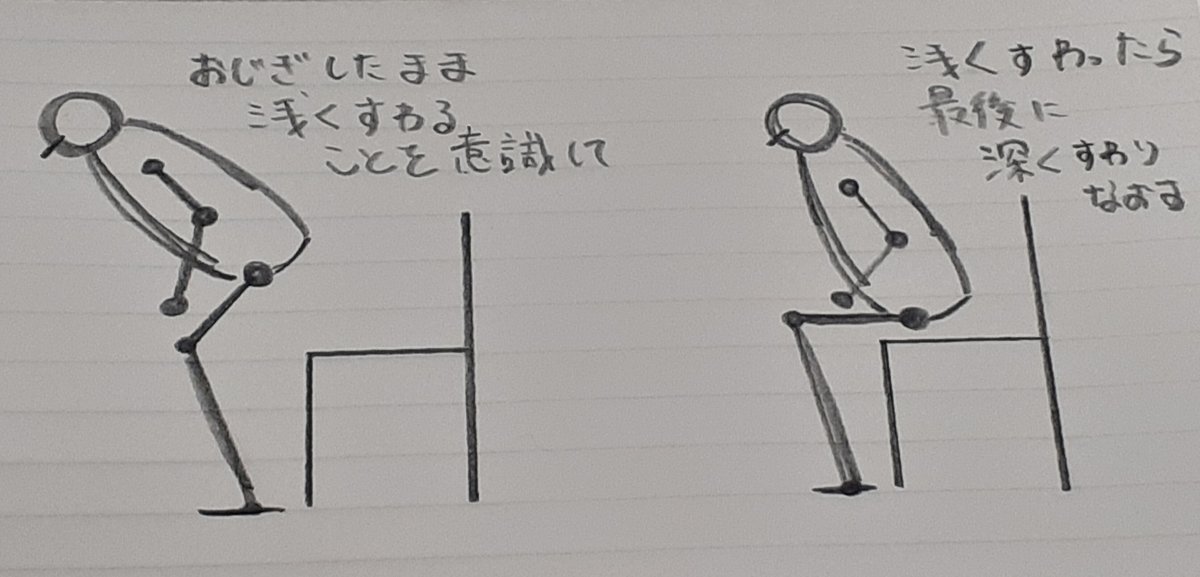 おじぎしたまま
浅くすわる
ことを意識して
浅くすわったら
最後に
深くすわり
なおす